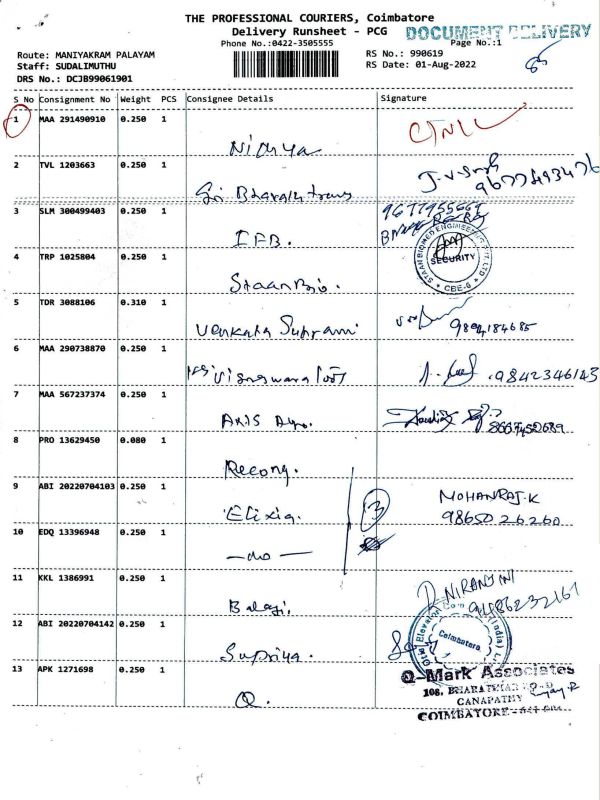 THE PROFESSIONAL COURIERS, Coimbatore
Delivery Runsheet - PCG
DOCUMENT DELIVERY
Phone No.:0422-3505555
Page No.:1
Route: MANIYAKRAM PALAYAM
Staff: SUDALIMUTHU
DRS No.: DCJB99061901
RS No.: 990619
RS Date: 01-Aug-2022
S No Consignment No Weight PCS Consignee Details Signature
1 MAA 291490910 0.250 1
Nithya
2 TVL 1203663 0.250 1
Sri Bharath trans
3 SLM 300499403 0.250 1
IFB.
4 TRP 1025804 0.250 1
Staan Bio.
STAAN BIOMED ENGINEERING PVT. LTD
SECURITY
CBE-6
5 TDR 3088106 0.310 1
Venkata Subramani
6 MAA 290738870 0.250 1
9842346143
7 MAA 567237374 0.250 1
AXIS
8 PRO 13629450 0.080 1
Recong.
9 ABI 20220704103 0.250 1
Elixia. 13 MOHANRAJ.K
9865026260
10 EDQ 13396948 0.250 1
-do-
11 KKL 1386991 0.250 1
Balaji. NIRANJINI
9486232161
12 ABI 20220704142 0.250 1
Supriya.
Coimbatore
13 APK 1271698 0.250 1
Q.
Q-Mark Associates
108, BHARATHIAR
GANAPATHY
COIMBATORE